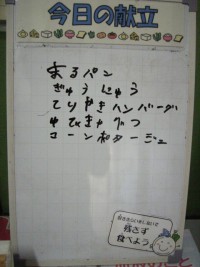 今日の献立
まるパン
ぎゅうにゅう
てりやきハンバーグ
ゆでキャベツ
コーンポタージュ
残さず
食べよう